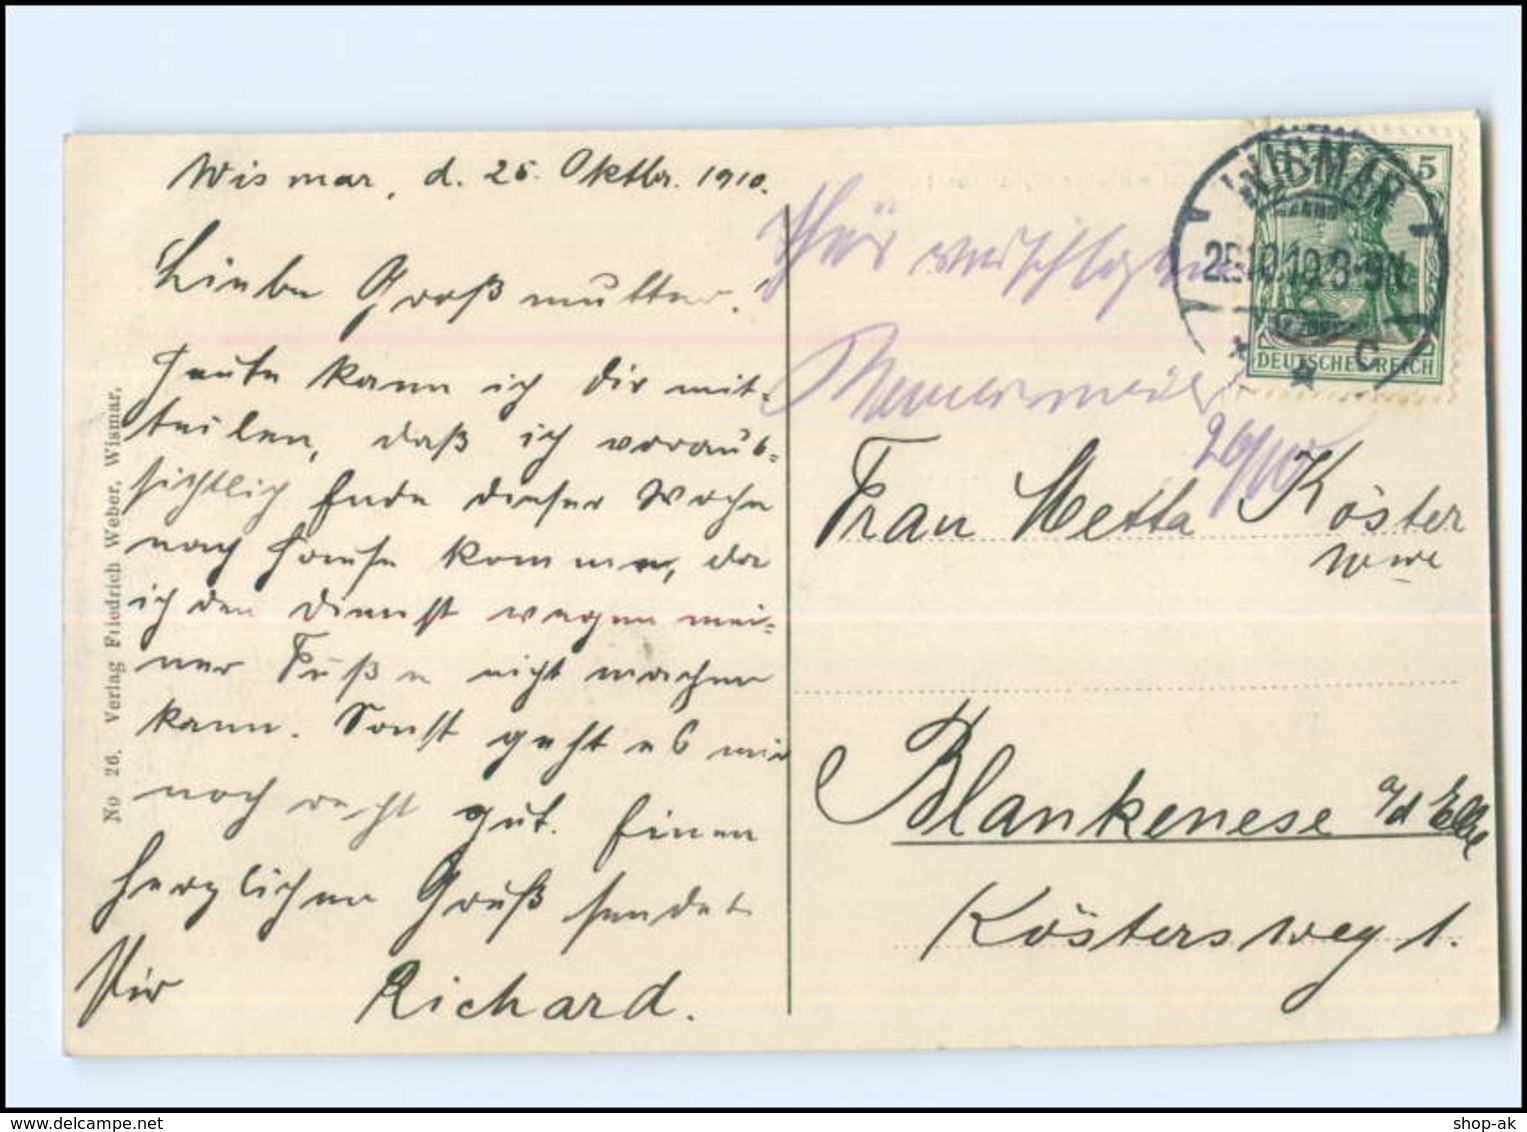 Wismar, d. 25. Oktbr. 1910.
Liebe Großmutter!
Heute kann ich Dir mit-
teilen, daß ich voraus-
sichtlich Ende dieser Woche
nach Hause komme, da
ich den Dienst wegen mei-
ner Füße nicht machen
kann. Sonst geht es mir
noch recht gut. Einen
herzlichen Gruß sendet
Dir Richard.
No 26. Verlag Friedrich Weber, Wismar.
WISMAR
25.10.10.8-9N.
* * C
5
DEUTSCHES REICH
26/10
Frau Metta Köster
Wwe
Blankenese a/d Elbe
Köstersweg 1.
shop-ak